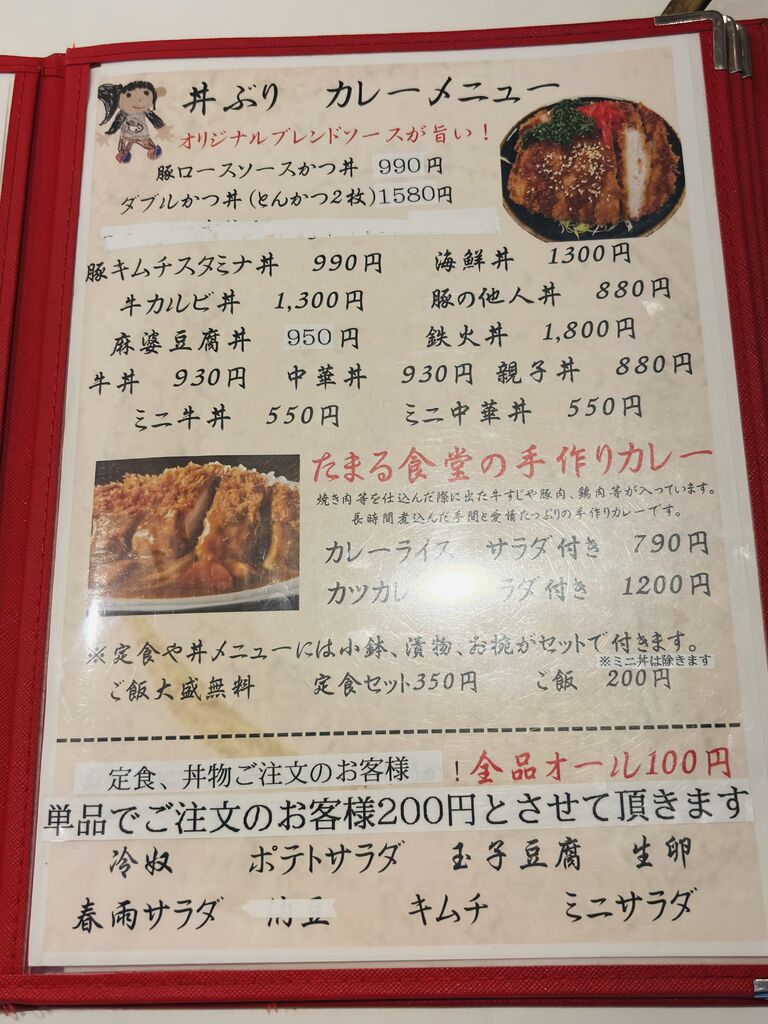 丼ぶり カレーメニュー
オリジナルブレンドソースが旨い!
豚ロースソースかつ丼 990円
ダブルかつ丼(とんかつ2枚)1580円
豚キムチスタミナ丼 990円 海鮮丼 1300円
牛カルビ丼 1,300円 豚の他人丼 880円
麻婆豆腐丼 950円 鉄火丼 1,800円
牛丼 930円 中華丼 930円 親子丼 880円
ミニ牛丼 550円 ミニ中華丼 550円
たまる食堂の手作りカレー
焼き肉等を仕込んだ際に出た牛すじや豚肉、鶏肉等が入っています。
長時間煮込んだ手間と愛情たっぷりの手作りカレーです。
カレーライス サラダ付き 790円
カツカレ ラダ付き 1200円
※定食や丼メニューには小鉢、漬物、お椀がセットで付きます。
※ミニ丼は除きます
ご飯大盛無料 定食セット350円 ご飯 200円
定食、丼物ご注文のお客様 !全品オール100円
単品でご注文のお客様200円とさせて頂きます
冷奴 ポテトサラダ 玉子豆腐 生卵
春雨サラダ キムチ ミニサラダ